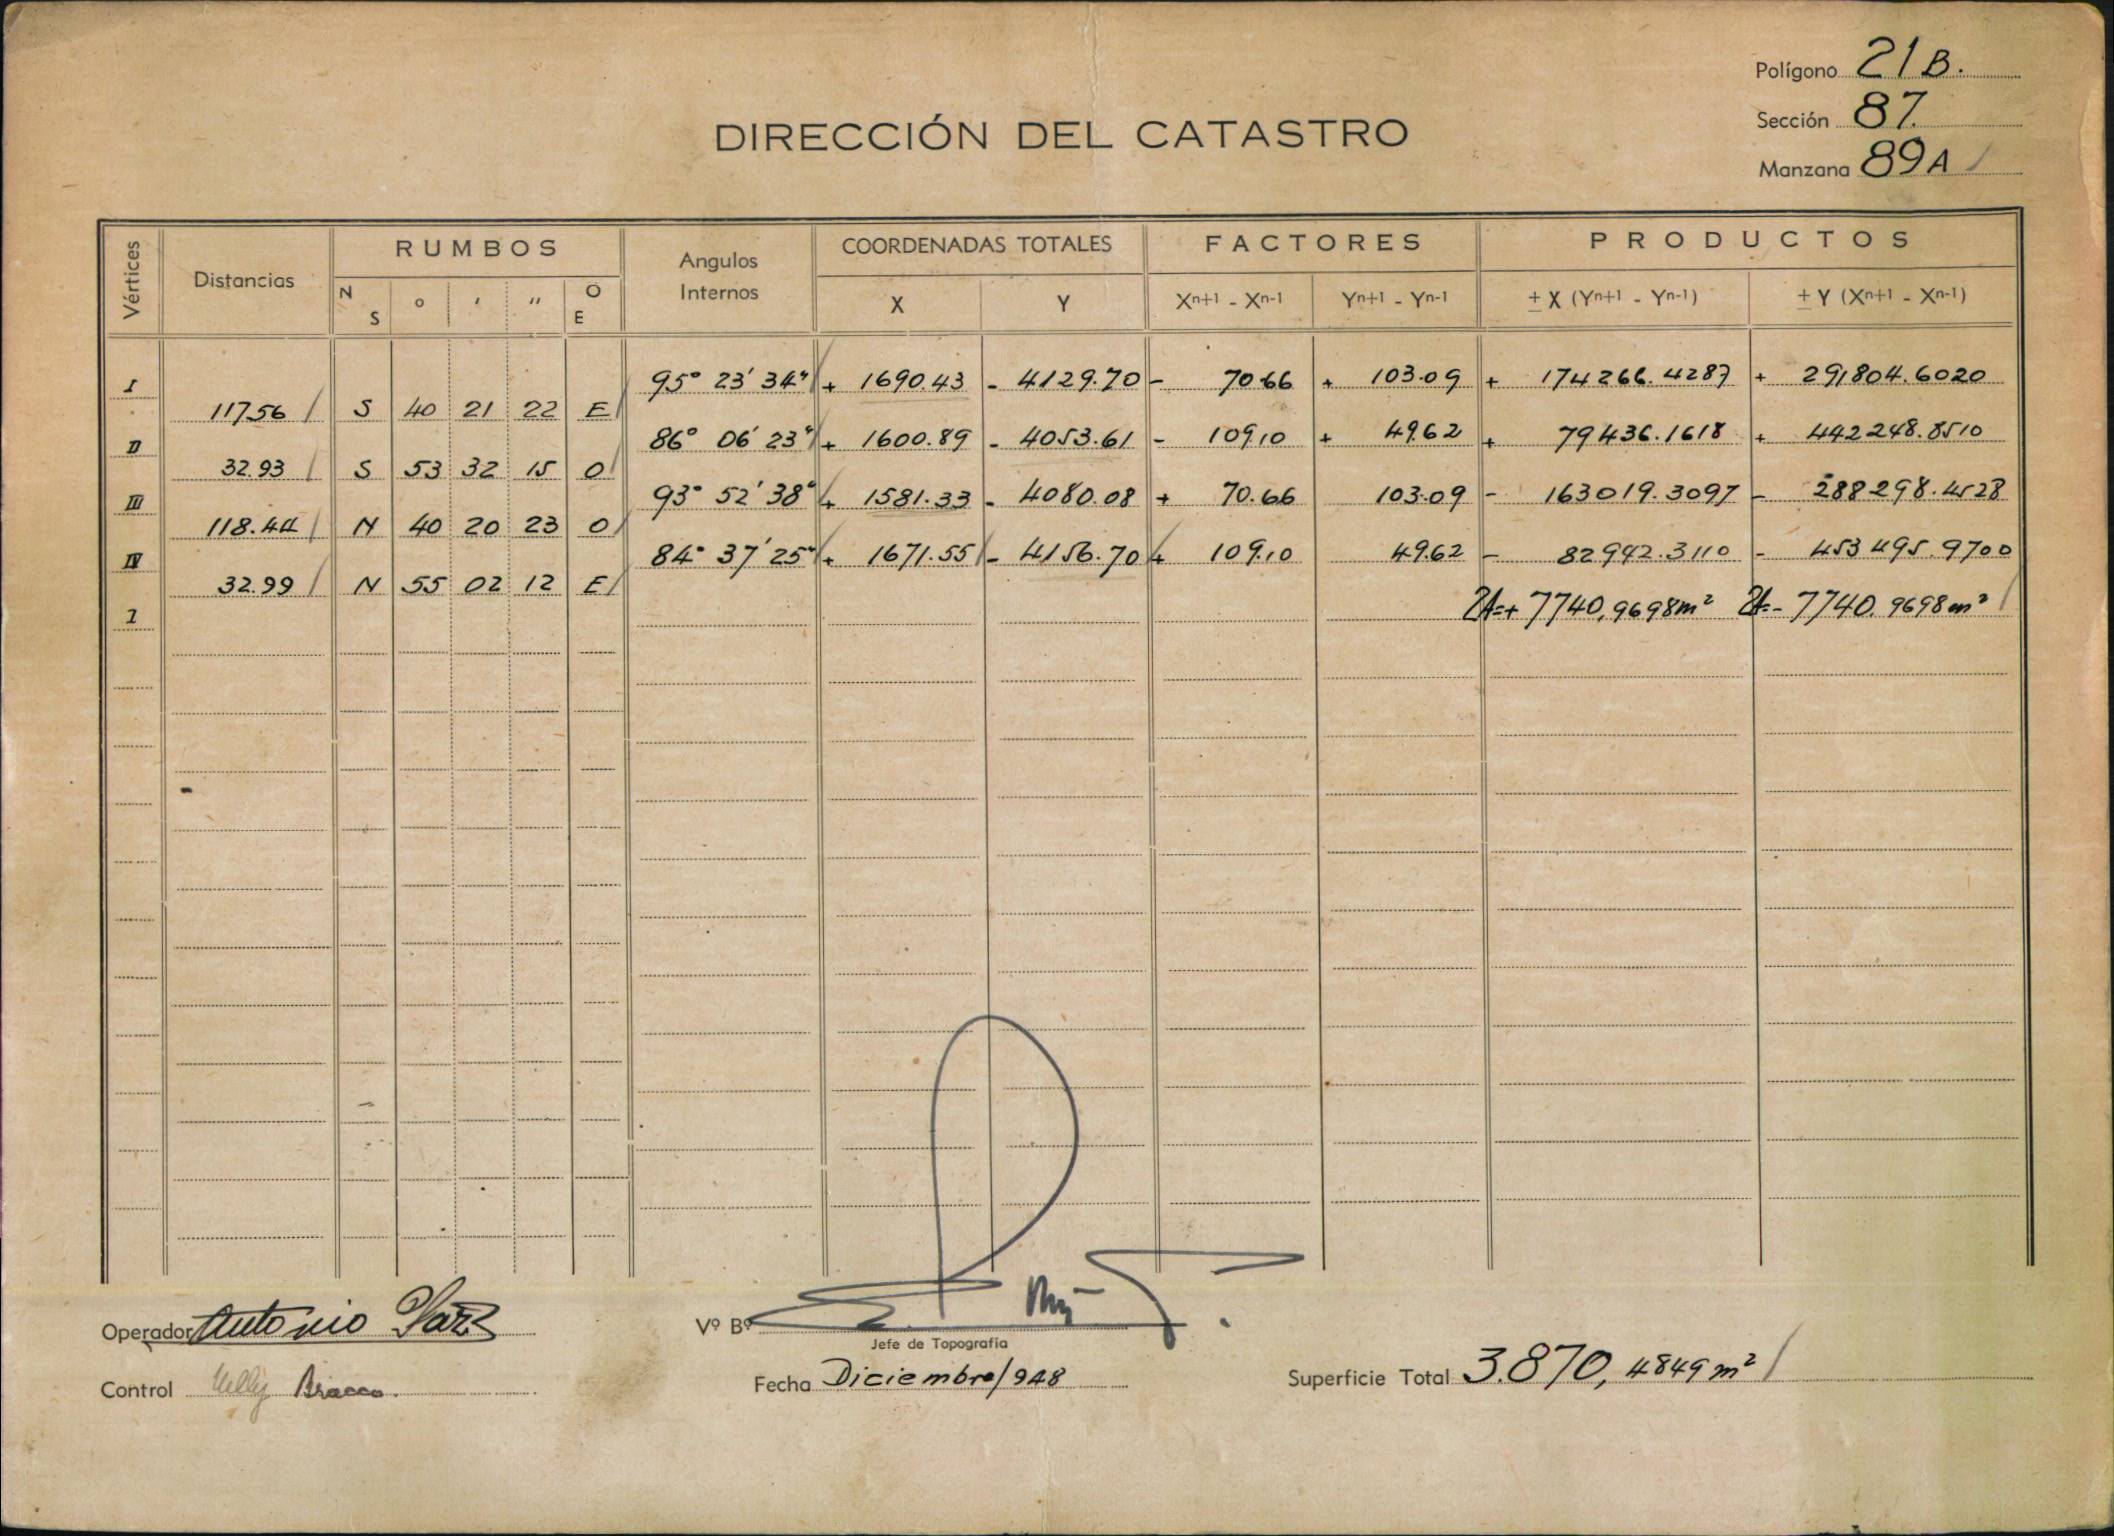 Polígono 21 B.
Sección 87.
Manzana 89 A
DIRECCIÓN DEL CATASTRO
Vértices Distancias RUMBOS Angulos Internos COORDENADAS TOTALES FACTORES PRODUCTOS
N S ° ' '' O E X Y Xn+1 - Xn-1 Yn+1 - Yn-1 ± X (Yn+1 - Yn-1) ± Y (Xn+1 - Xn-1)
I 95° 23' 34" + 1690.43 - 4129.70 - 70.66 + 103.09 + 174266.4287 + 291804.6020
117.56 S 40 21 22 E
II 86° 06' 23" + 1600.89 - 4053.61 - 109.10 + 49.62 + 79436.1618 + 442248.8510
32.93 S 53 32 15 O
III 93° 52' 38" + 1581.33 - 4080.08 + 70.66 103.09 - 163019.3097 - 288298.4528
118.44 N 40 20 23 O
IV 84° 37' 25" + 1671.55 - 4156.70 + 109.10 49.62 - 82942.3110 - 453495.9700
32.99 N 55 02 12 E
I 2A=+ 7740,9698m² 2A=- 7740.9698m²
Operador Antonio
Vº Bº
Jefe de Topografía
Control Nelly Bracco.
Fecha Diciembre/948
Superficie Total 3.870,4849 m²